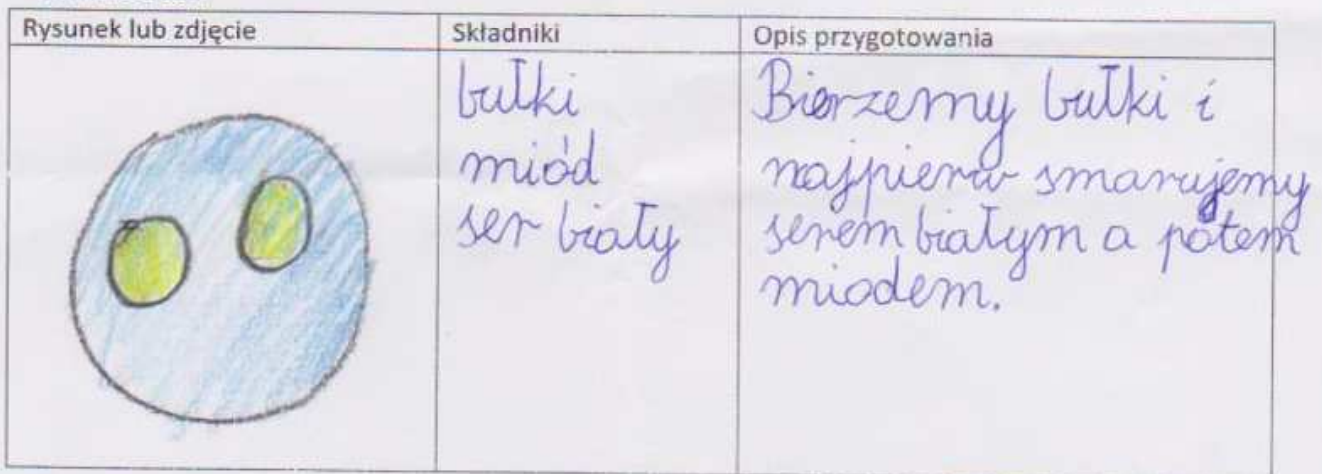 Rysunek lub zdjęcie
Składniki
Opis przygotowania
bułki
miód
ser biały
Bierzemy bułki i
najpierw smarujemy
serem białym a potem
miodem.